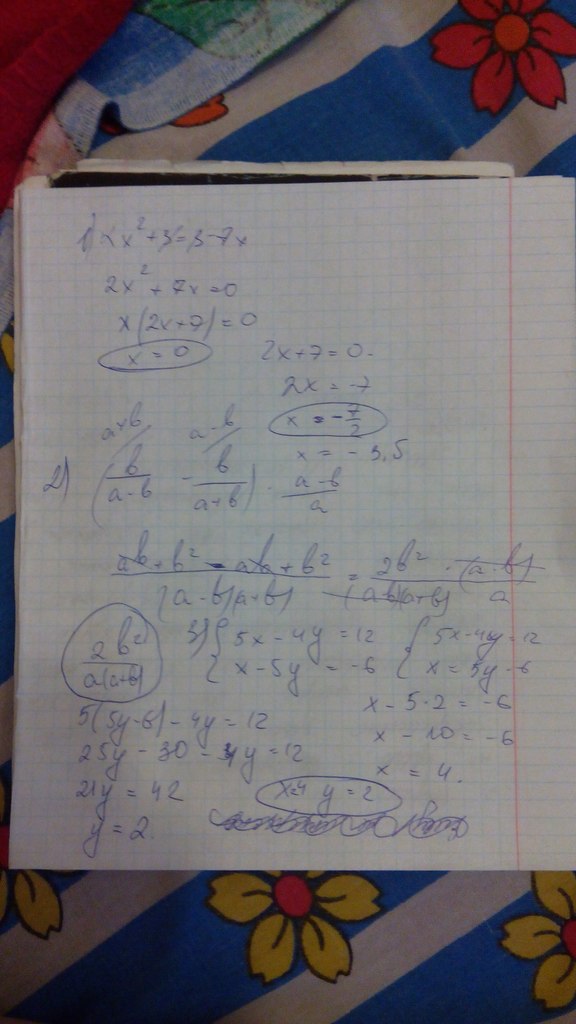 1) 2x² + 3 = 3 - 7x
2x² + 7x = 0
x(2x+7) = 0
x = 0
2x+7 = 0.
2x = -7
x = -7/2
x = -3,5
a+b a-b
2) (b/(a-b) - b/(a+b)) · (a-b)/a
(ab+b² - ab+b²)/((a-b)(a+b)) = (2b² · (a-b))/((a-b)(a+b) a)
2b²/(a(a+b))
3) { 5x - 4y = 12 { 5x - 4y = 12
{ x - 5y = -6 { x = 5y - 6
5(5y-6) - 4y = 12
25y - 30 - 4y = 12
21y = 42
y = 2.
x - 5·2 = -6
x - 10 = -6
x = 4.
x=4 y = 2